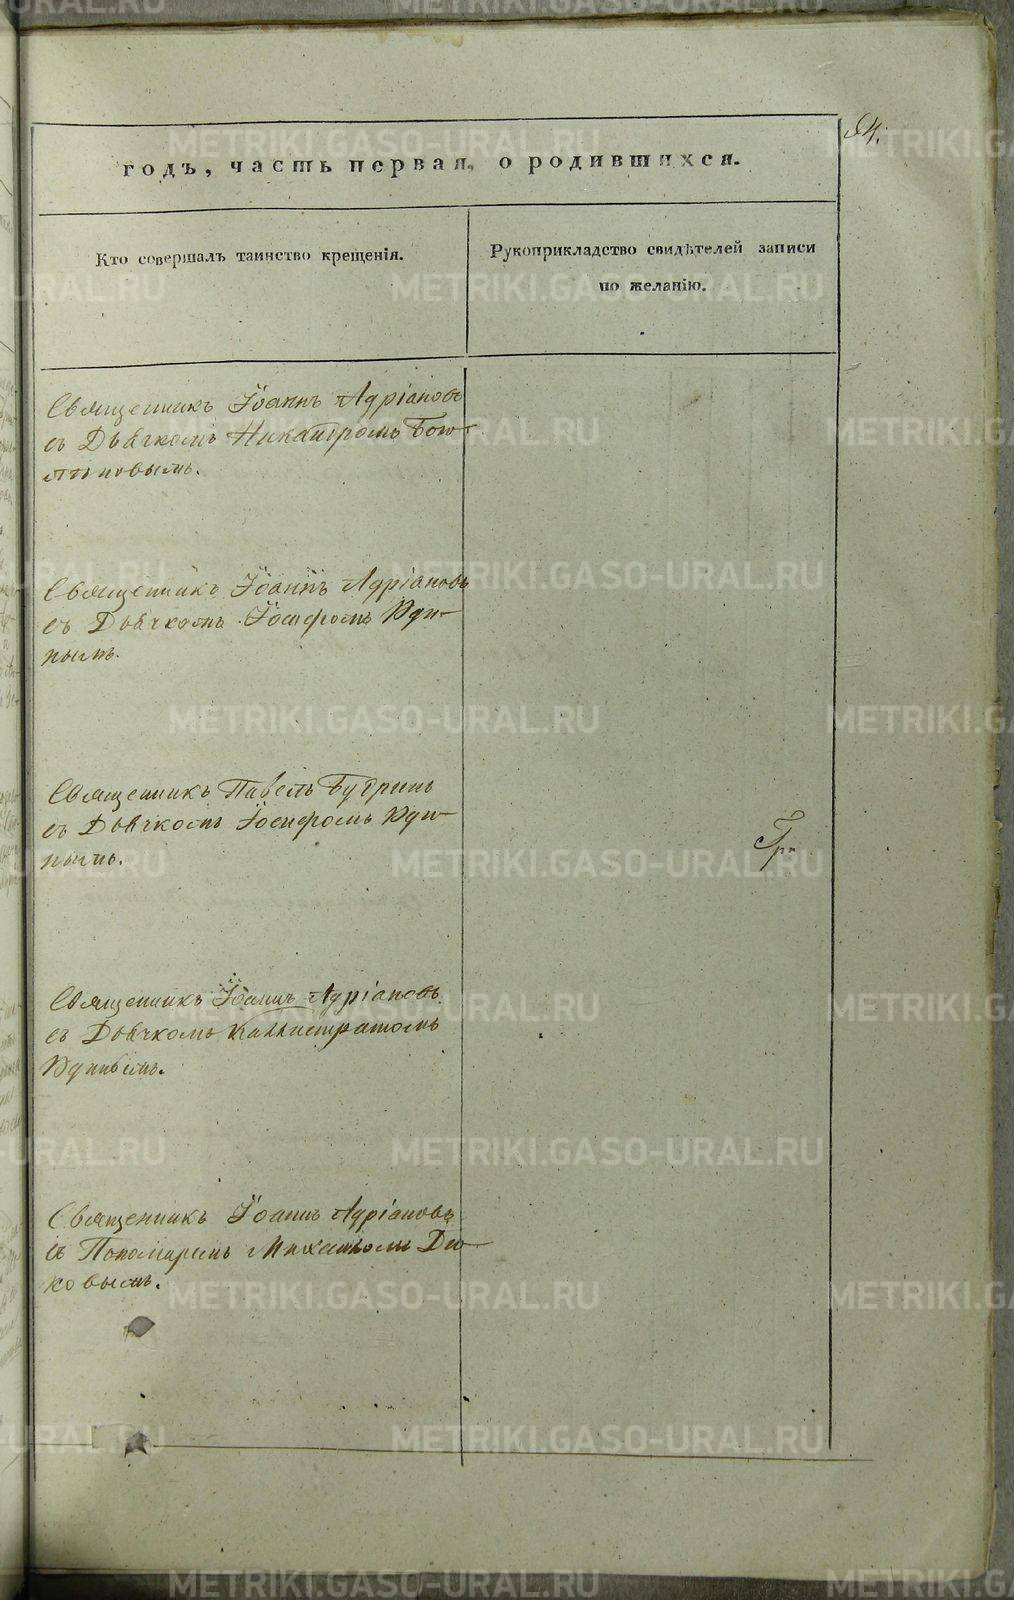 94.
годъ, часть первая, о родившихся.
Кто совершалъ таинство крещенія.
Рукоприкладство свидѣтелей записи
по желанію.
Священникъ Іоаннъ Адріановъ
съ Дьячкомъ Никандромъ
Священникъ Іоаннъ Адріановъ
съ Дьячкомъ Іосифомъ Юди-
нымъ.
Священникъ Павелъ Бубринъ
съ Дьячкомъ Іосифомъ Юди-
нымъ.
Священникъ Іоаннъ Адріановъ
съ Дьячкомъ Каллистратомъ
Юдинымъ.
Священникъ Іоаннъ Адріановъ
съ Пономаремъ Михаиломъ Ди-
ковымъ.
METRIKI.GASO-URAL.RU